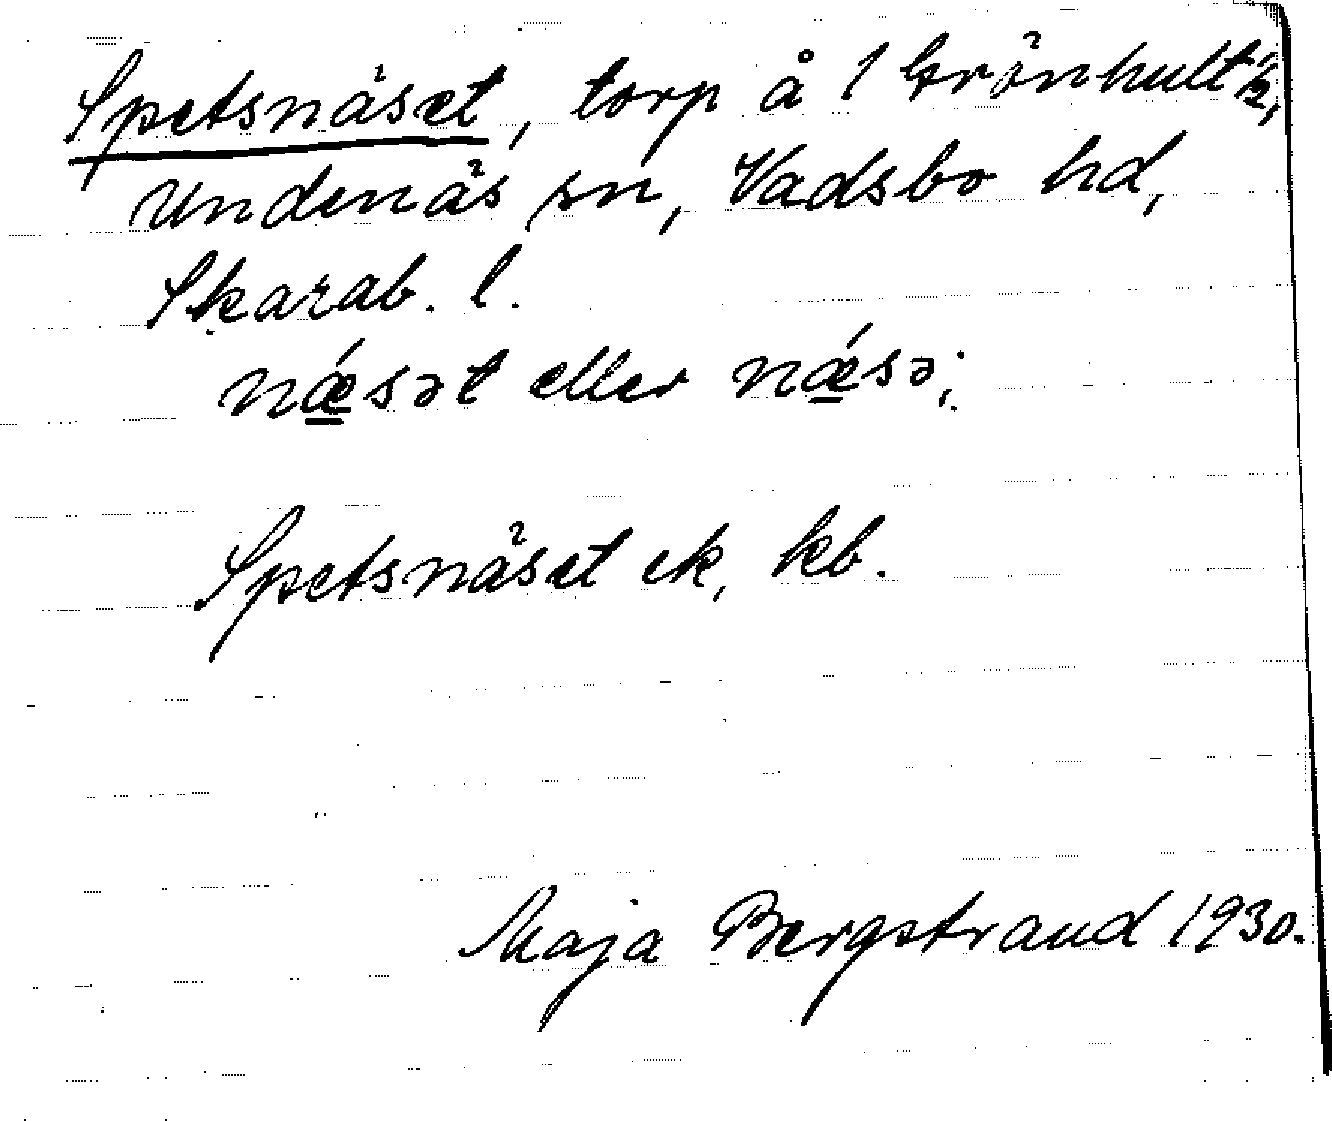 Spetsnäset, torp å 1 Grönhult ½,
Undenäs sn, Vadsbo hd,
Skarab. l.
nǽsət eller nǽsə;
Spetsnäset ek, kb.
Maja Bergstrand 1930.